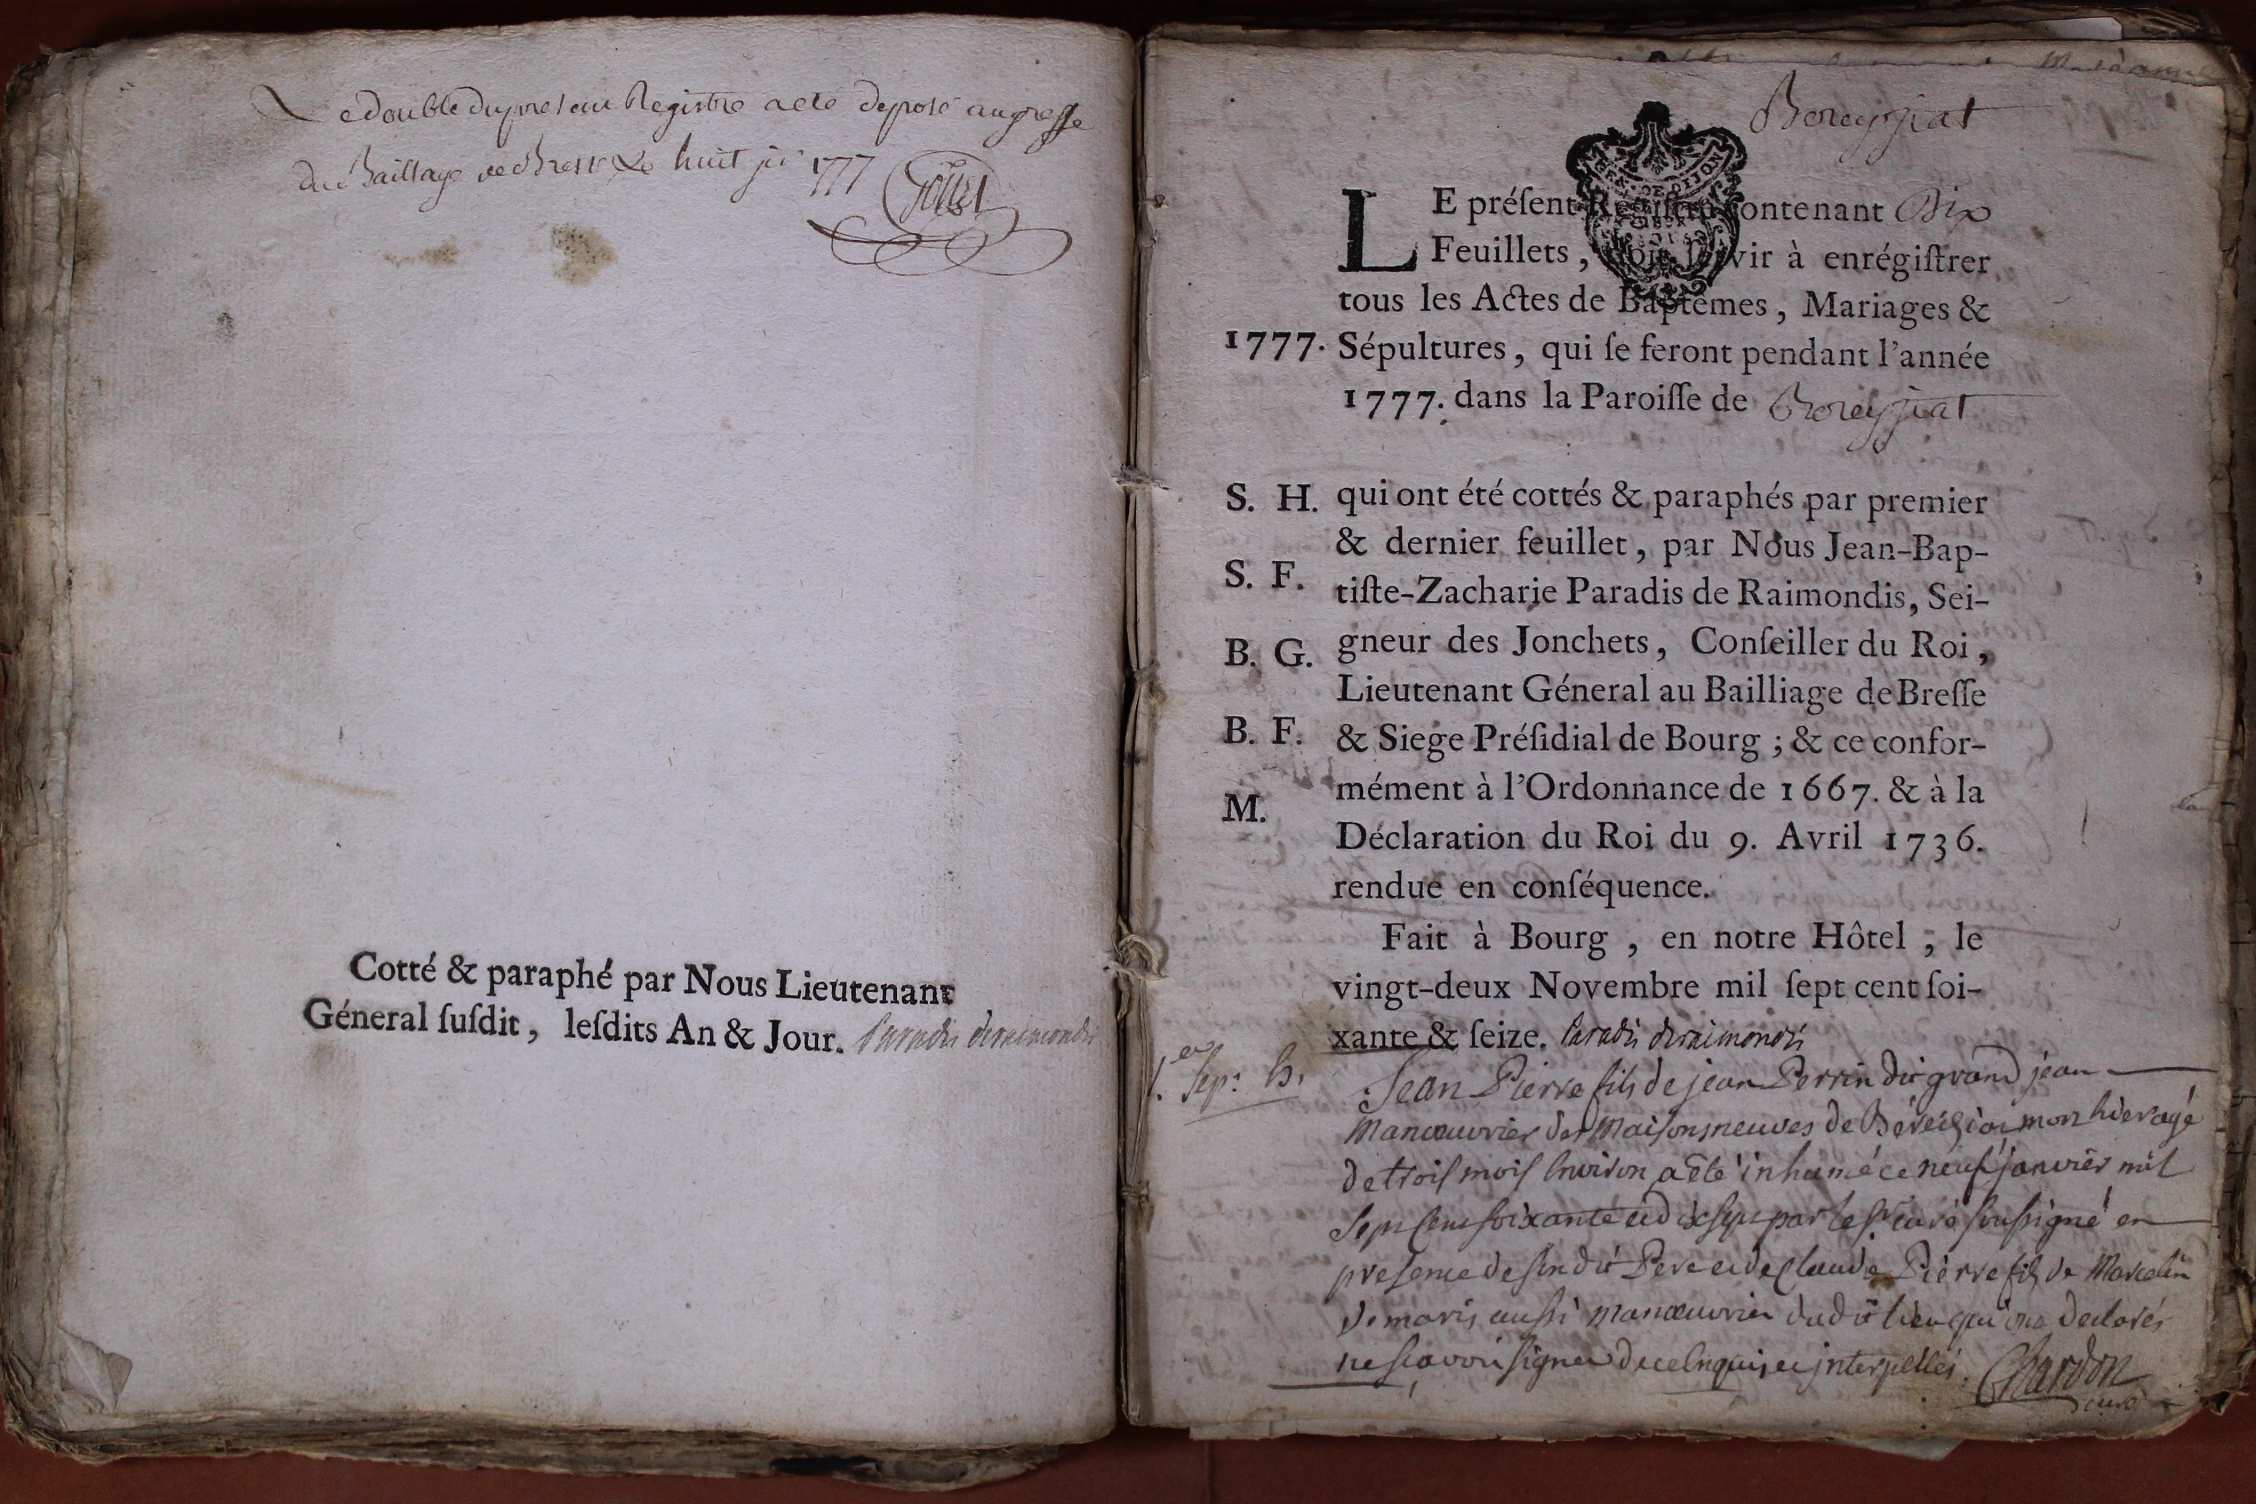 Le double du present Registre a eté deposé au greffe
du Baillage de Bresse Le huit jer 1777
Cotté & paraphé par Nous Lieutenant
Géneral ſuſdit, leſdits An & Jour. Paradis deraimondis
Bereyziat
LE préſent Regiſtre contenant Dix
Feuillets, doit ſervir à enrégiſtrer
tous les Actes de Baptêmes, Mariages &
1777. Sépultures, qui ſe feront pendant l'année
1777. dans la Paroiſſe de Bereyziat
S. H. qui ont été cottés & paraphés par premier
& dernier feuillet, par Nous Jean-Bap-
S. F. tiſte-Zacharie Paradis de Raimondis, Sei-
B. G. gneur des Jonchets, Conſeiller du Roi,
Lieutenant Géneral au Bailliage de Breſſe
B. F. & Siege Préſidial de Bourg ; & ce confor-
mément à l'Ordonnance de 1667. & à la
M. Déclaration du Roi du 9. Avril 1736.
rendue en conſéquence.
Fait à Bourg, en notre Hôtel, le
vingt-deux Novembre mil ſept cent ſoi-
xante & ſeize. Paradis deraimondis
1.er Sep: h. Jean Pierre fils de jean Perrin dit grand jean
Manœuvrier des Maisonsneuves de Béréiziat mort hier agé
de trois mois Environ a été inhumé ce neuf janvier mil
Sept Cent soixante et dix sept par le Sr curé soussigné en
presence de son dit Pere et de Claude Pierre fils de Marcelin
Demaris aussi Manœuvrier dudit lieu qui ont declarés
ne sçavoir signer de ce Enquis et interpellés. Chardon
curé